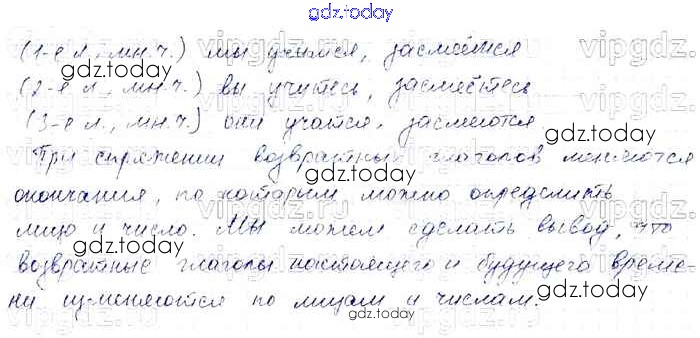 gdz.today
(1-е л., мн.ч.) мы учимся, засмеёмся
gdz.today
(2-е л., мн.ч.) вы учитесь, засмеётесь
gdz.today
(3-е л., мн.ч.) они учатся, засмеются
gdz.today
При спряжении возвратных глаголов меняются
окончания, по которым можно определить
gdz.today
лицо и число. Мы можем сделать вывод, что
gdz.today
возвратные глаголы настоящего и будущего време-
ни изменяются по лицам и числам.
gdz.today
gdz.today